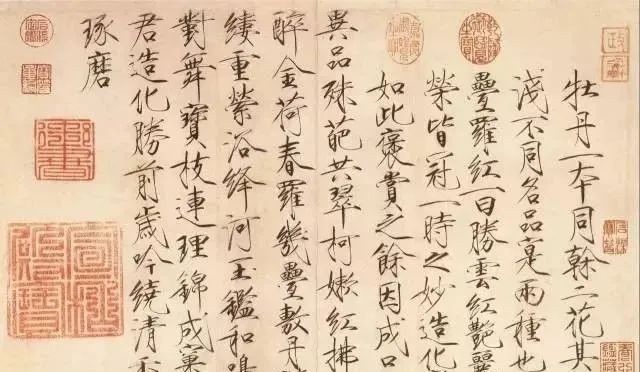 牡丹一本同榦二花其
淺不同名品寔兩種也
疊羅紅一曰勝雲紅艷麗
榮皆冠一時之妙造化
如此褒賞之餘因成口
異品殊葩共翠柯嫩紅拂
醉金荷春羅幾疊敷丹
縷重縈浴絳河玉鑑和鳴
對舞寶枝連理錦成窠
君造化勝前歲吟繞清香
琢磨